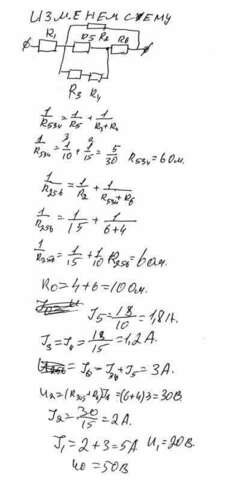 ИЗМЕНЕМ СХЕМУ
R₁ R5 R₂ R6
R3 R4
1/R534 = 1/R5 + 1/R3+R4
1/R534 = 1/10 + 1/15 = 5/30 R534 = 6 Ом.
1/R256 = 1/R2 + 1/R534+R6
1/R256 = 1/15 + 1/6+4
1/R256 = 1/15 + 1/10 R256 = 6 Ом.
R0 = 4+6 = 10 Ом.
J5 = 18/10 = 1,8 А.
J3 = J4 = 18/15 = 1,2 А.
J6 = J34 + J5 = 3 А.
U2 = (R345+R6)J6 = (6+4)3 = 30 В.
J2 = 30/15 = 2 А.
J1 = 2+3 = 5 А U1 = 20 В.
U0 = 50 В